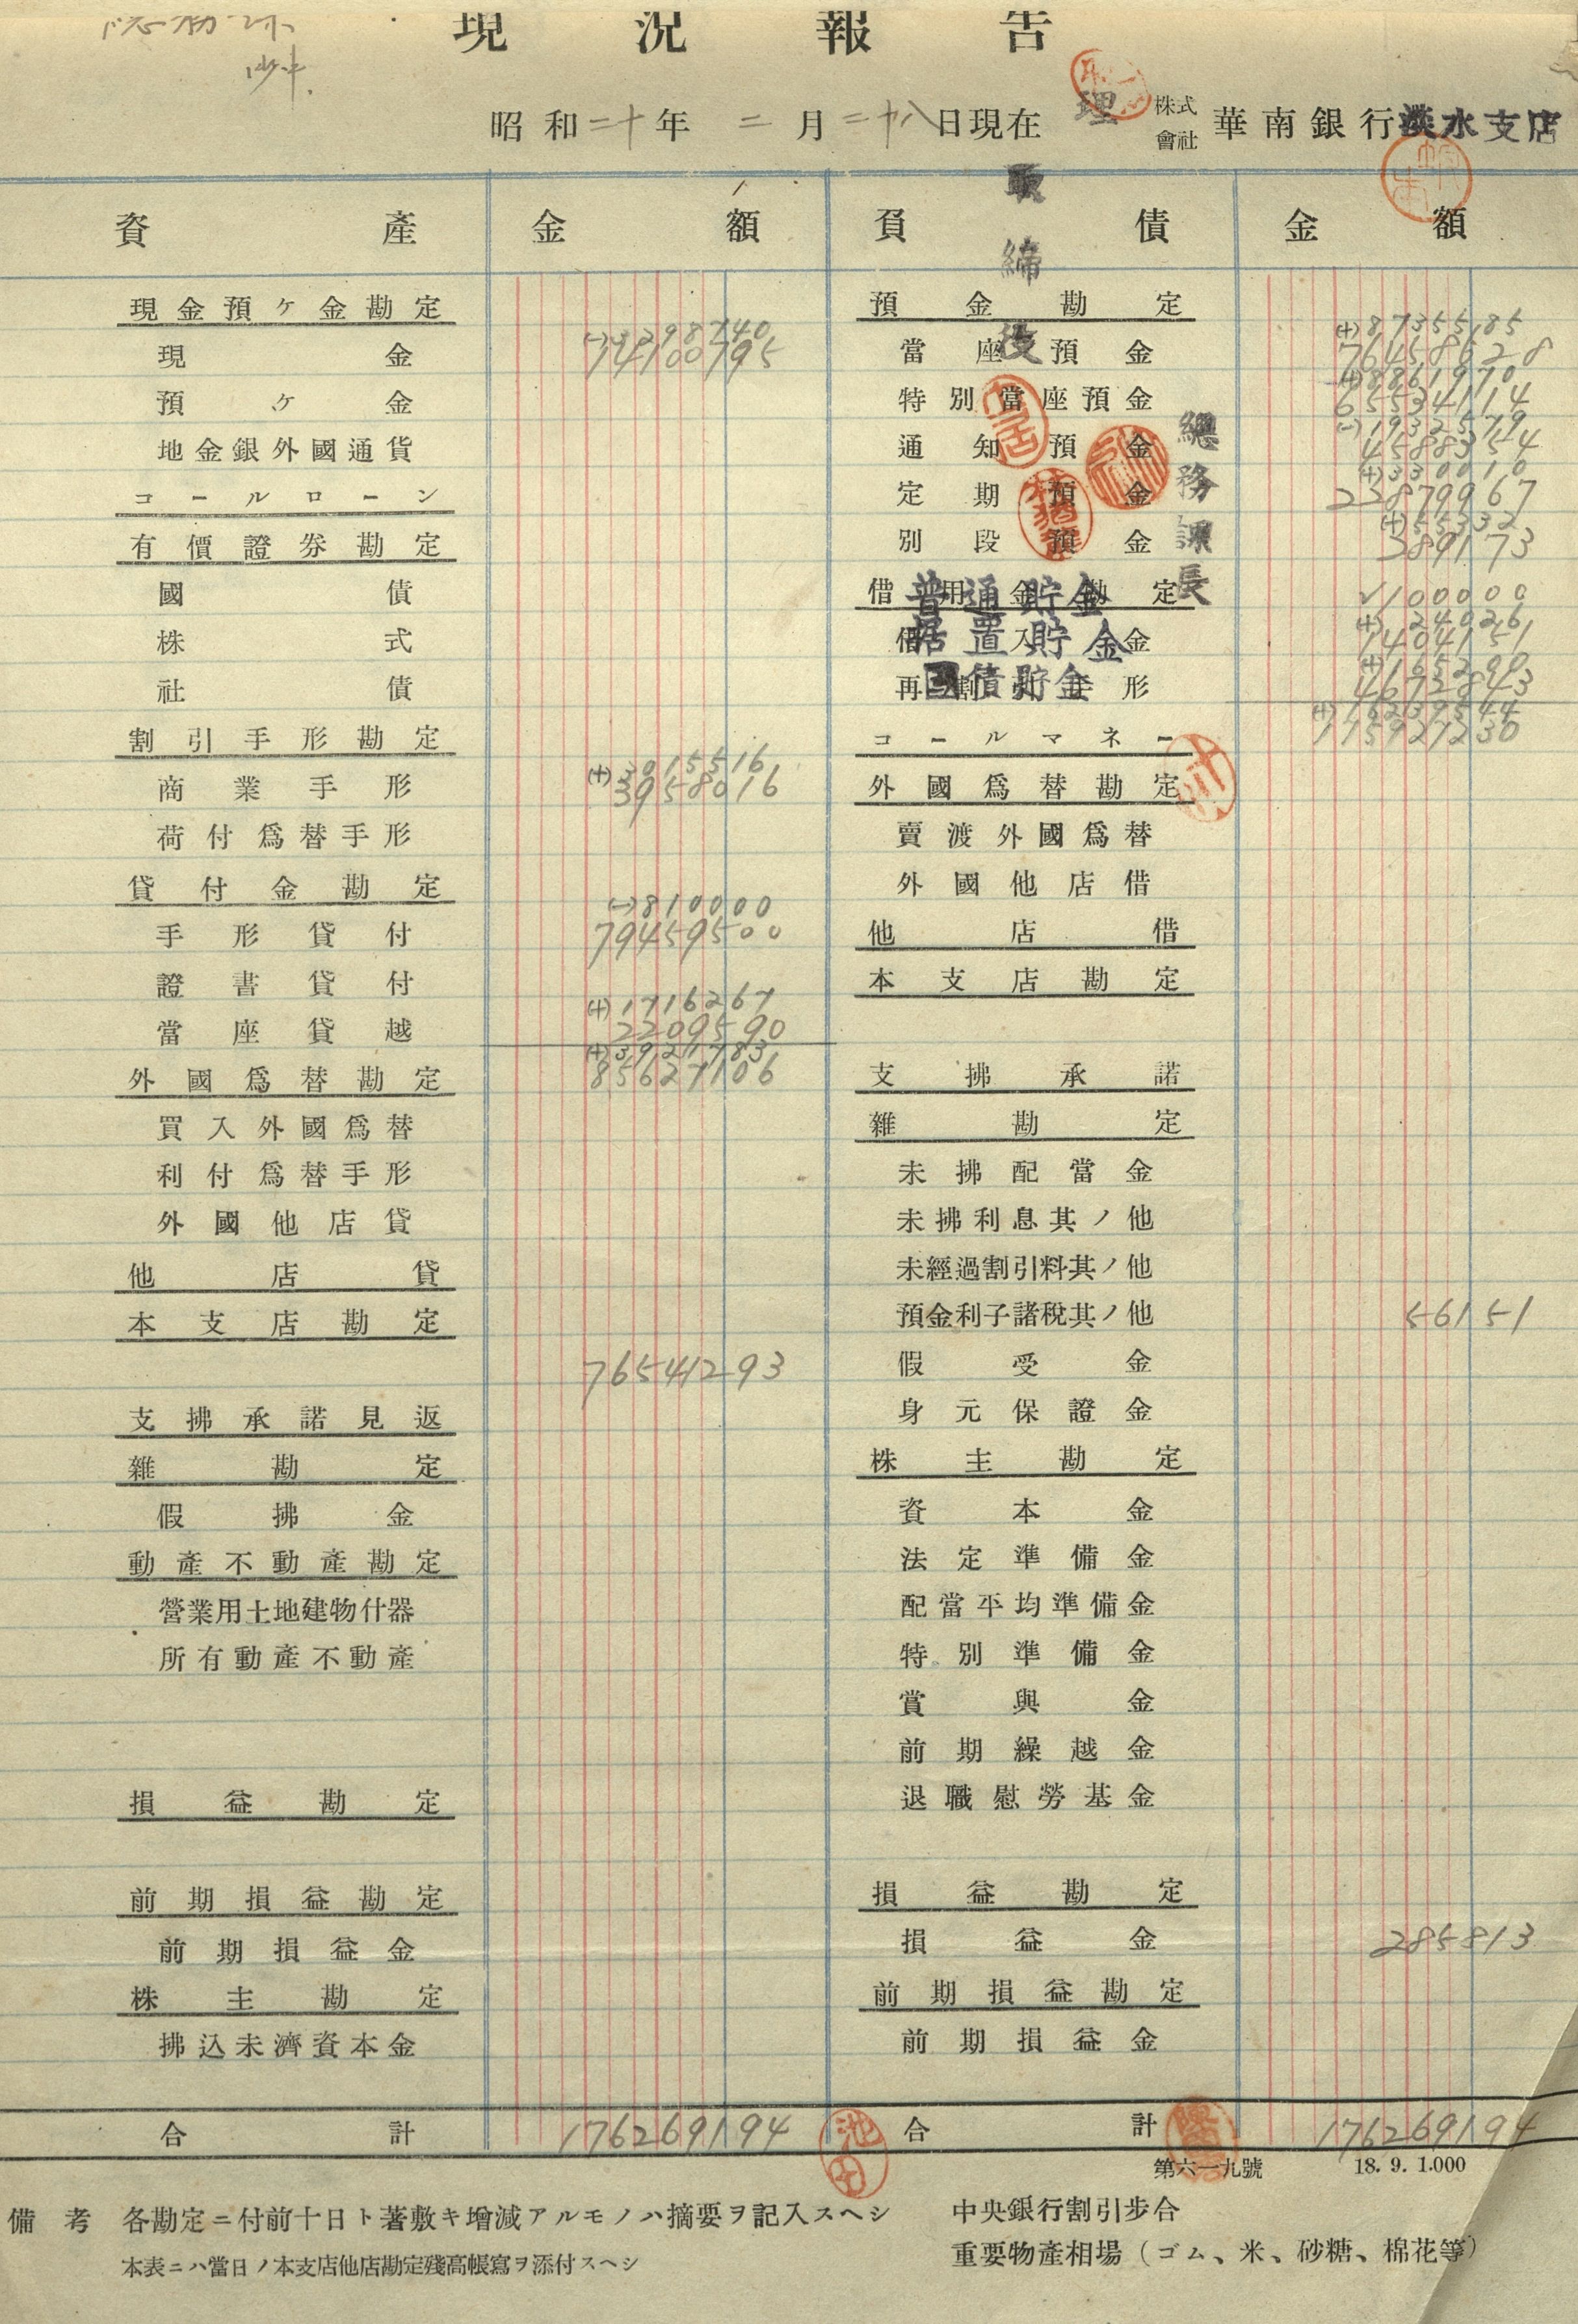 現況報告
昭和二十年二月二十八日現在 株式會社 華南銀行淡水支店
理
取
締
役
總務課長
資產 金額 負債 金額
現金預ケ金勘定
現金 74100795
預ケ金
地金銀外國通貨
コールローン
有價證券勘定
國債
株式
社債
割引手形勘定
(+)3015516
商業手形 3958016
荷付爲替手形
貸付金勘定
(-)810000
手形貸付 79459500
證書貸付
(+)1716267
當座貸越 2209590
(+)3921783
外國爲替勘定 85627106
買入外國爲替
利付爲替手形
外國他店貸
他店貸
本支店勘定
76541293
支拂承諾見返
雜勘定
假拂金
動產不動產勘定
營業用土地建物什器
所有動產不動產
損益勘定
前期損益勘定
前期損益金
株主勘定
拂込未濟資本金
合計 176269194
預金勘定
(+)87355,85
當座預金 76458628
(+)8861970
特別當座預金 65534114
(-)1932579
通知預金 4588354
(+)330010
定期預金 22879967
(+)55332
別段預金 389173
借用金勘定
普通貯金 100000
(+)240261
借入金
据置貯金 1404151
(+)165200
再割引手形
國債貯金 4672843
(+)16239544
コールマネー 115921230
外國爲替勘定
賣渡外國爲替
外國他店借
他店借
本支店勘定
支拂承諾
雜勘定
未拂配當金
未拂利息其ノ他
未經過割引料其ノ他
預金利子諸稅其ノ他 56151
假受金
身元保證金
株主勘定
資本金
法定準備金
配當平均準備金
特別準備金
賞與金
前期繰越金
退職慰勞基金
損益勘定
損益金 285813
前期損益勘定
前期損益金
合計 176269194
池田
第六一九號 18. 9. 1.000
備考 各勘定ニ付前十日ト著敷キ增減アルモノハ摘要ヲ記入スヘシ
本表ニハ當日ノ本支店他店勘定殘高帳寫ヲ添付スヘシ
中央銀行割引步合
重要物產相場（ゴム、米、砂糖、棉花等）